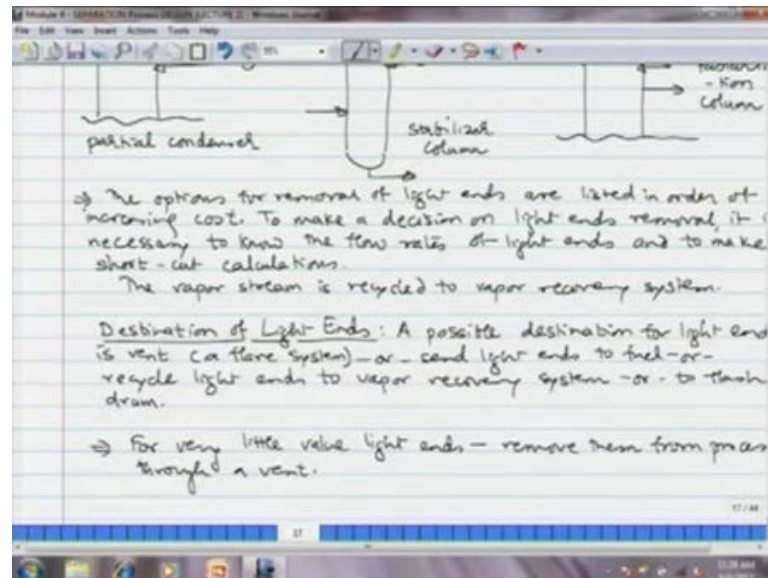 Module 4 - SEPARATION Process DESIGN (LECTURE 2) - Windows Journal
File Edit View Insert Actions Tools Help
partial condenser
stabilizer
column
-tion
column
⇒ The options for removal of light ends are listed in order of
increasing cost. To make a decision on light ends removal, it i
necessary to know the flow rates of light ends and to make
short-cut calculations.
The vapor stream is recycled to vapor recovery system.
Destination of Light Ends: A possible destination for light end
is vent (a flare system) -or- send light ends to fuel -or-
recycle light ends to vapor recovery system -or- to flash
drum.
⇒ For very little value light ends - remove them from proces
through a vent.
17